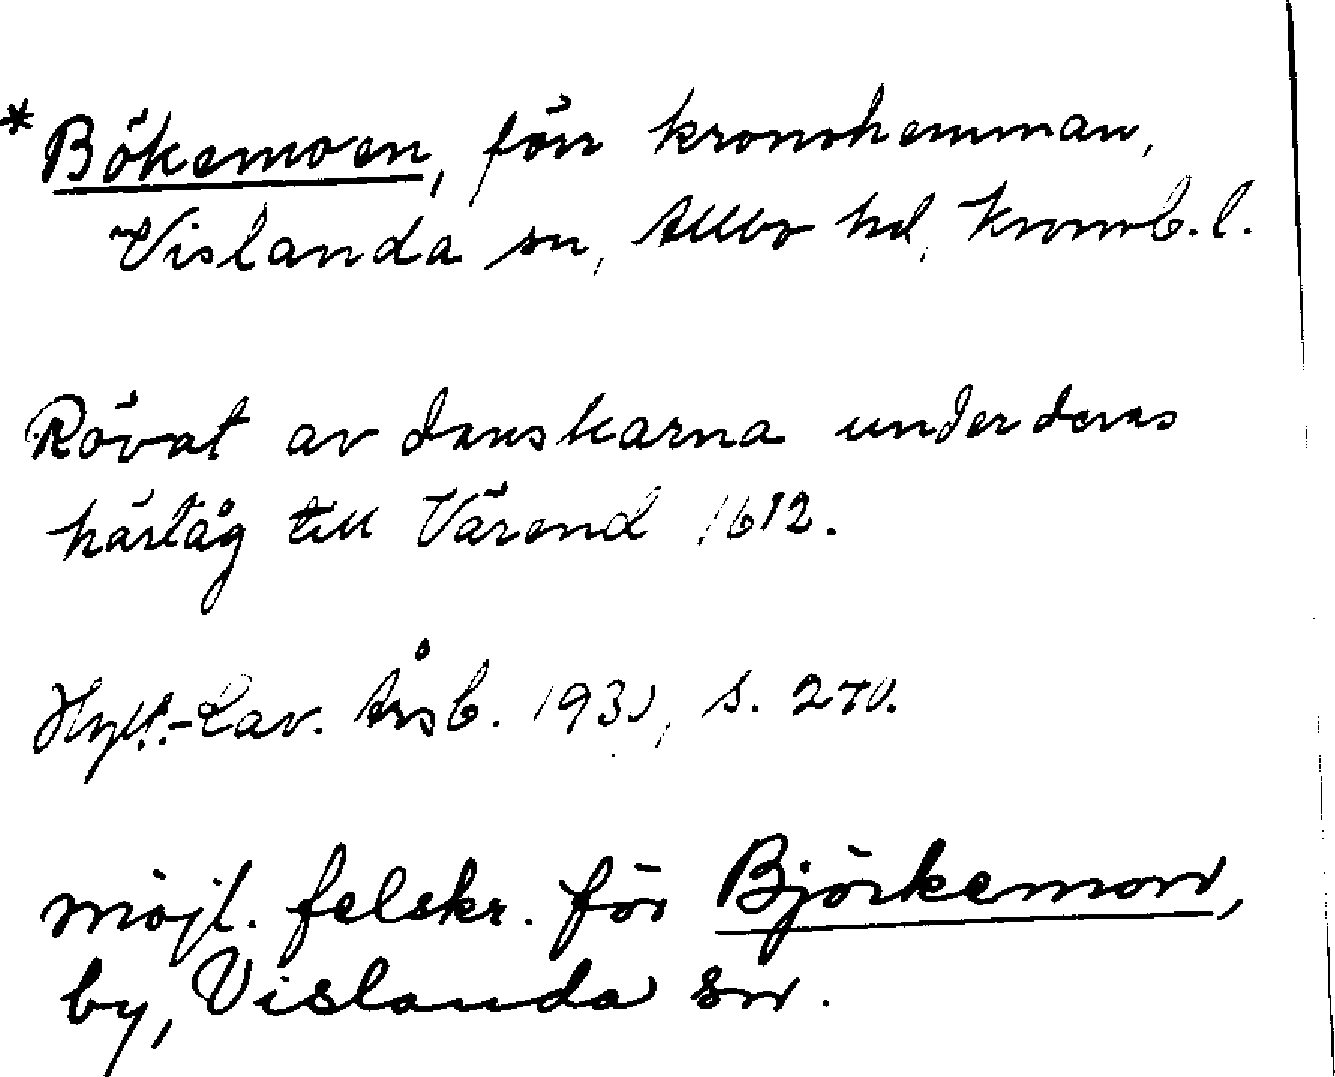 * Bökemoen, förr kronohemman,
Vislanda sn, Allbo hd, Kronob. l.
Rövat av danskarna under deras
härtåg till Värend 1612.
Hylt.-Cav. Årsb. s. 270.
möjl. felskr. för Björkemon,
by, Vislanda sn.